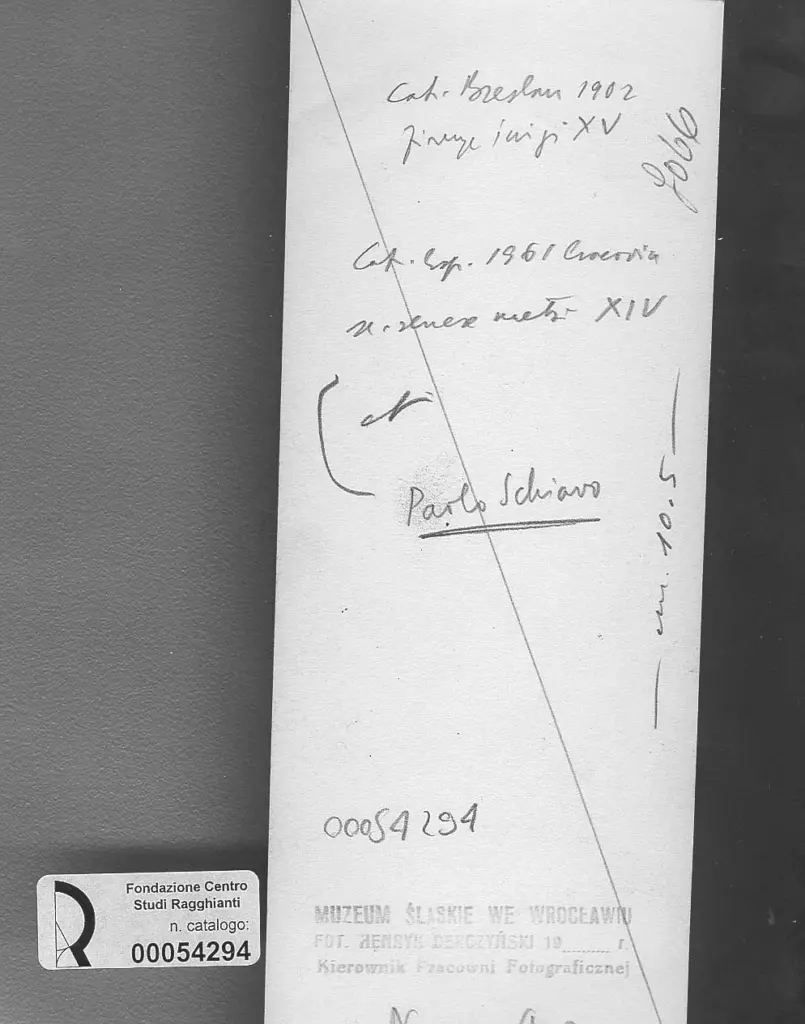 Cat. Breslau 1902
Firenze inizi XV
9066
Cat. Esp. 1961 Cracovia
sc. senese metà XIV
Paolo Schiavo
— cm. 10.5 —
00054294
MUZEUM ŚLĄSKIE WE WROCŁAWIU
FOT. HENRYK DERCZYŃSKI 19........ r.
Kierownik Pracowni Fotograficznej
Fondazione Centro
Studi Ragghianti
n. catalogo:
00054294